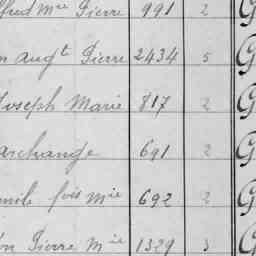 lfred Mie Pierre 991 2 G
n augt Pierre 2434 5 G
Joseph Marie 817 2 G
archange 691 2 G
mile fois Mie 692 2 G
on Pierre Mie 1329 3 G